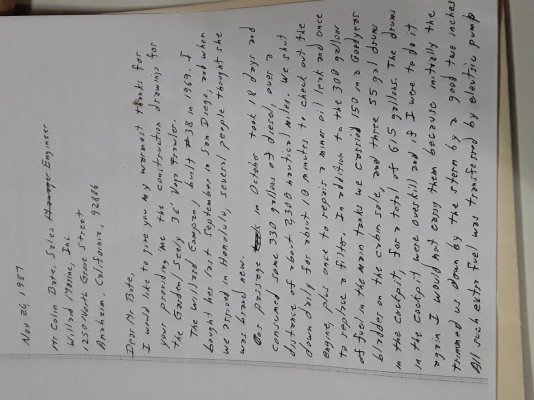 Nov 26, 1987
Mr. Colin Bate, Sales Engineer
Willard Marine, Inc
1250 North Grove Street
Anaheim, California, 92806
Dear Mr. Bate,
I would like to give you my warmest thanks for
your providing me the construction drawings for
the Garden/Seely 36' Vega Trawler.
The Willard Company built #38 in 1969. I
bought her last September in San Diego, and when
we arrived in Honolulu, several people thought she
was brand new.
Our passage in October took 18 days and
consumed some 330 gallons of diesel, over a
distance of about 2,300 nautical miles. We shut
down daily for about 10 minutes to check out the
engine, plus once to repair a minor oil leak and once
to replace a filter. In addition to the 300 gallons
of fuel in the main tanks we carried 150 in a Goodyear
bladder on the cabin sole, and three 55 gal drums
in the cockpit for a total of 615 gallons. The drums
in the cockpit were overkill and if I were to do it
again I would not carry them because initially the
trimmed us down by the stern by a good two inches
All such extra fuel was transferred by electric pump